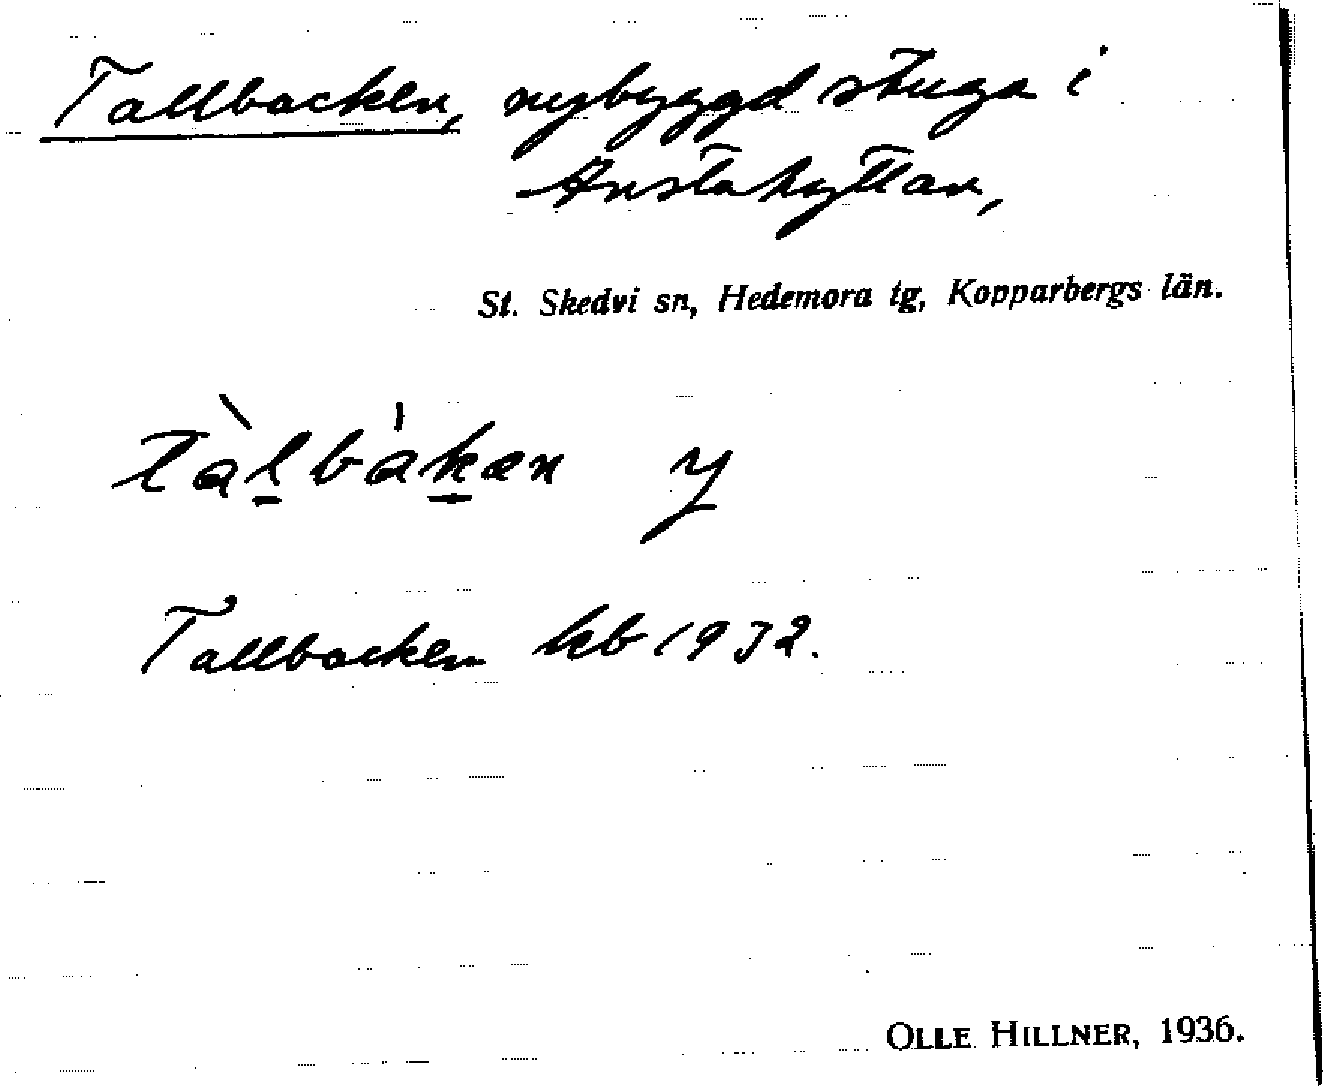 Tallbacken, nybyggd stuga i
Anstahyttan,
St. Skedvi sn, Hedemora tg, Kopparbergs län.
tàl̠bàk̠æn y
Tallbacken kb 1932.
OLLE HILLNER, 1936.